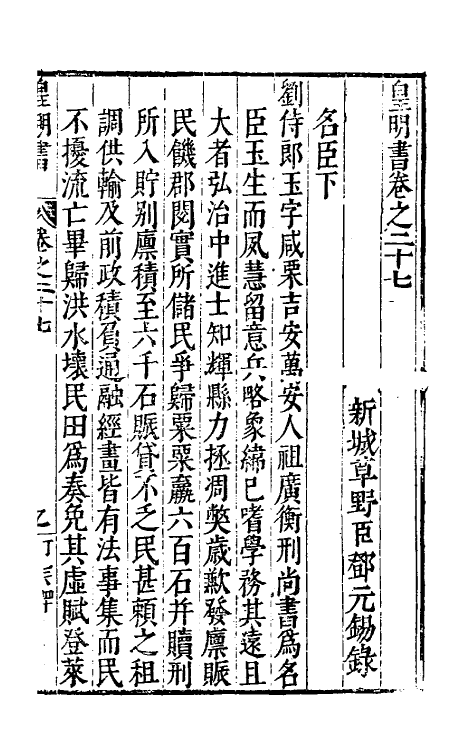 皇明書卷之二十七
新城草野臣鄧元錫錄
名臣下
劉侍郎玉字咸栗吉安萬安人祖廣衡刑尚書爲名
臣玉生而夙慧留意兵略象緯已嗜學務其遠且
大者弘治中進士知輝縣力拯凋獘歲歉發廪賑
民饑郡閱實所儲民爭歸粟粟贏六百石并贖刑
所入貯别廪積至六千石賑貸不乏民甚賴之租
調供輸及前政積負通融經畫皆有法事集而民
不擾流亡畢歸洪水壞民田爲奏免其虛賦登萊
皇明書
卷之二十七